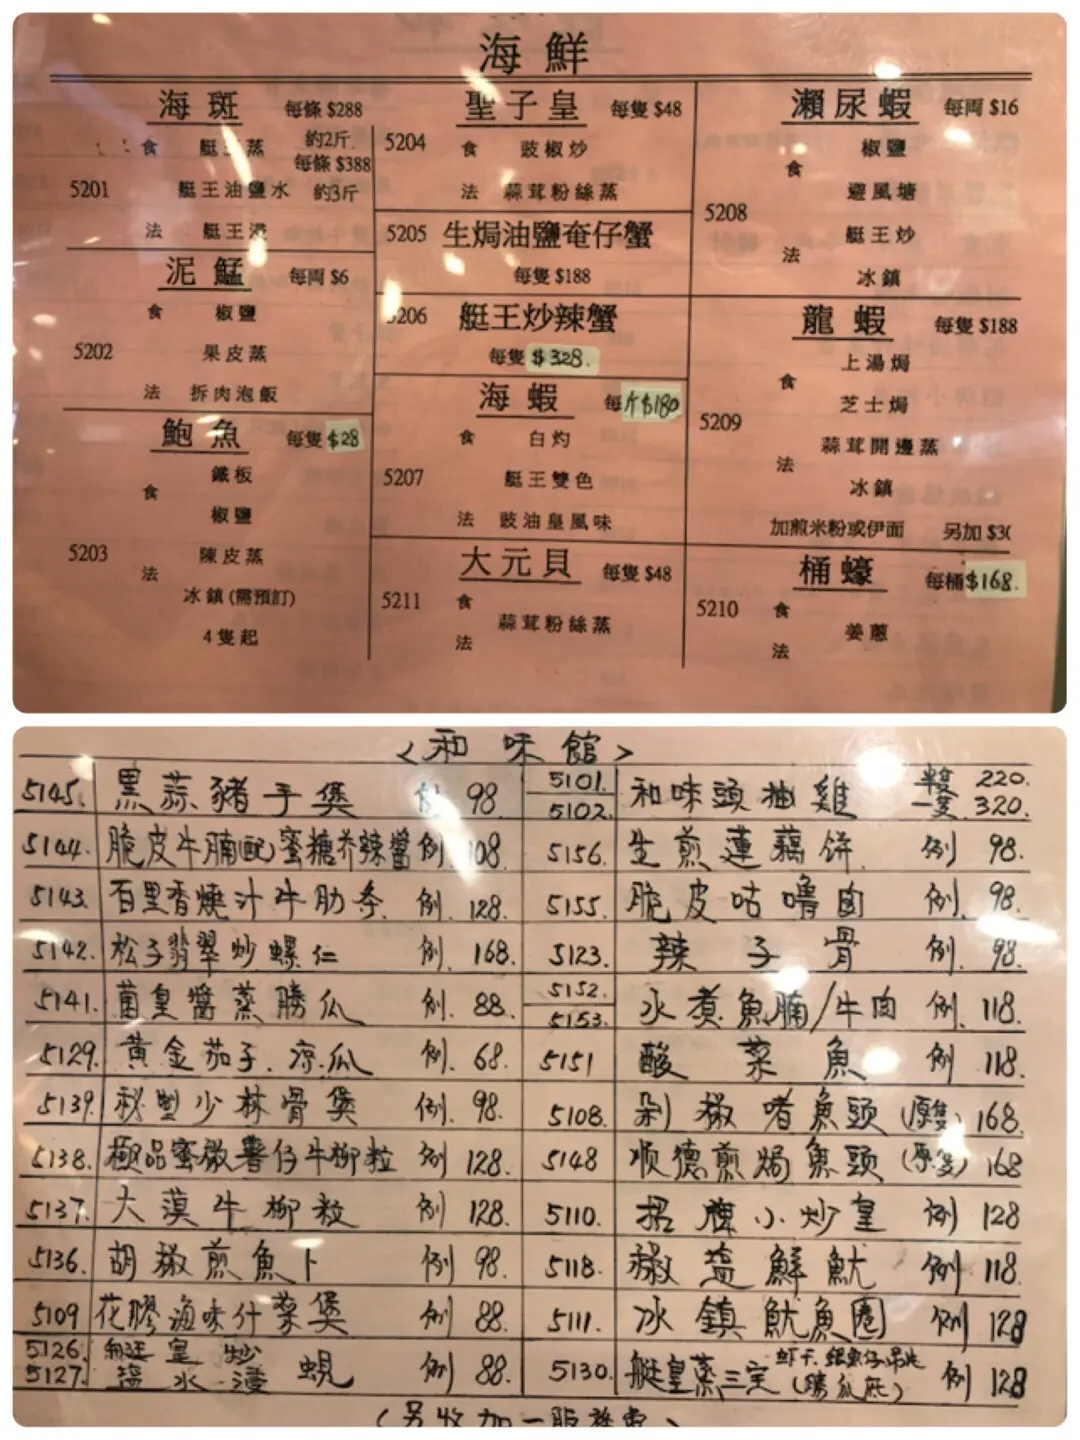 海鮮
海斑 每條 $288
約2斤
食 艇王蒸
每條 $388
5201 艇王油鹽水 約3斤
法 艇王浸
泥鯭 每両 $6
食 椒鹽
5202 果皮蒸
法 拆肉泡飯
鮑魚 每隻 $28
鐵板
食
椒鹽
5203 陳皮蒸
法
冰鎮 (需預訂)
4隻起
聖子皇 每隻 $48
5204 食 豉椒炒
法 蒜茸粉絲蒸
5205 生焗油鹽奄仔蟹
每隻 $188
5206 艇王炒辣蟹
每隻 $328.
海蝦 每斤$180
食 白灼
5207 艇王雙色
法 豉油皇風味
大元貝 每隻 $48
5211 食
蒜茸粉絲蒸
法
瀨尿蝦 每両 $16
椒鹽
食
避風塘
5208
艇王炒
法
冰鎮
龍蝦 每隻 $188
上湯焗
食
芝士焗
5209
蒜茸開邊蒸
法
冰鎮
加煎米粉或伊面 另加 $30
桶蠔 每桶$168.
5210 食
姜蔥
法
<和味館>
5145. 黑蒜豬手煲 例 98.
5144. 脆皮牛腩配蜜糖芥辣醬 例 108
5143. 百里香燒汁牛肋条 例. 128.
5142. 松子翡翠炒螺仁 例. 168.
5141. 菌皇醬蒸勝瓜 例. 88.
5129. 黄金茄子.凉瓜 例. 68.
5139. 秘制少林骨煲 例. 98.
5138. 極品蜜椒薯仔牛柳粒 例 128.
5137. 大漠牛柳粒 例 128.
5136. 胡椒煎魚卜 例 98.
5109 花膠海味什菜煲 例 88.
5126.
5127. 皇炒
塩水浸 蜆 例 88.
5101.
5102. 和味頭抽雞 半隻 220.
一隻 320.
5156. 生煎蓮藕饼 例 98.
5155. 脆皮咕嚕肉 例. 98.
5123. 辣子骨 例. 98.
5152.
5153. 水煮魚腩/牛肉 例. 118.
5151 酸菜魚 例 118.
5108. 剁椒啫魚頭 (原隻) 168.
5148 順德煎焗魚頭 (原隻) 168
5110. 招牌小炒皇 例 128
5118. 椒塩鮮魷 例 118.
5111. 冰鎮魷魚圈 例 128
5130. 艇皇蒸三宝 (勝瓜底) 例 128